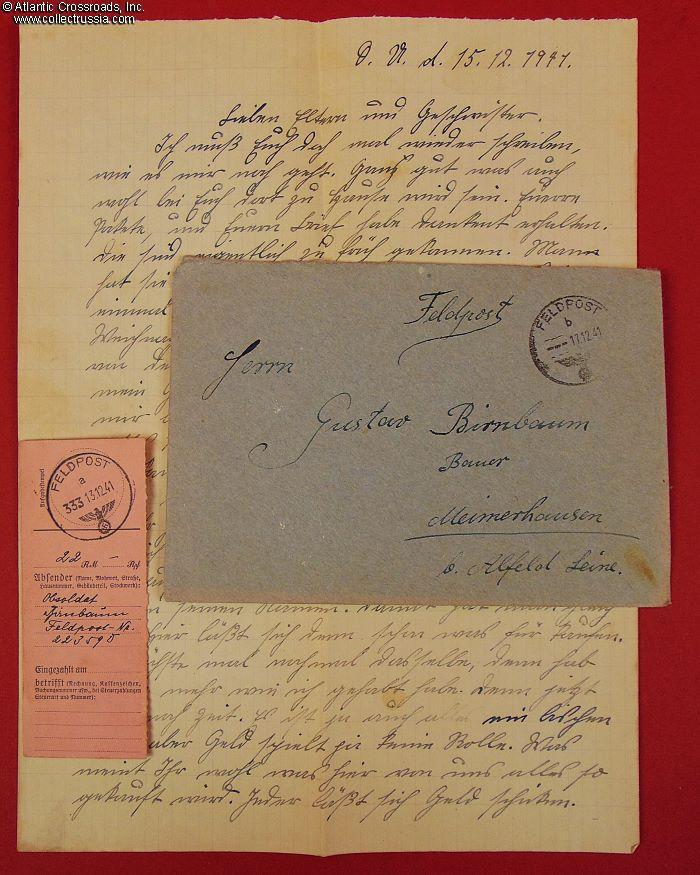 © Atlantic Crossroads, Inc.
www.collectrussia.com
O. U. d. 15.12.1941.
Lieben Eltern und Geschwister.
Ich muß Euch doch mal wieder schreiben,
wie es mir noch geht. Ganz gut was auch
wohl bei Euch dort zu Hause wird sein. Euere
Pakete und Euern Brief habe dankent erhalten.
Die sind eigentlich zu früh gekommen. Mann
hat sie
einmal
Weichna
von de
mein
mir
Feldpost
FELDPOST
b
17.12.41
Herrn
Gustav Birnbaum
Bauer
Meimerhausen
b. Alfeld Leine.
FELDPOST
a
333 13.12.41
22 RM — Rpf
Absender (Name, Wohnort, Straße,
Hausnummer, Gebäudeteil, Stockwerk):
Obsoldat
Birnbaum
Feldpost-Nr.
22359 D
Eingezahlt am
betrifft (Rechnung, Kassenzeichen,
Buchungsnummer usw., bei Steuerzahlungen
Steuerart und Nummer):
seinen Namen. Damit hat mann
hier läßt sich denn schon was für kaufen.
mal nochmal dasselbe, denn hab
mehr wie ich gehabt habe. Denn jetzt
noch Zeit. Es ist ja auch alles ein bischen
aber Geld spielt ja keine Rolle. Was
meint Ihr wohl was hier von uns alles so
gekauft wird. Jeder läßt sich Geld schicken.